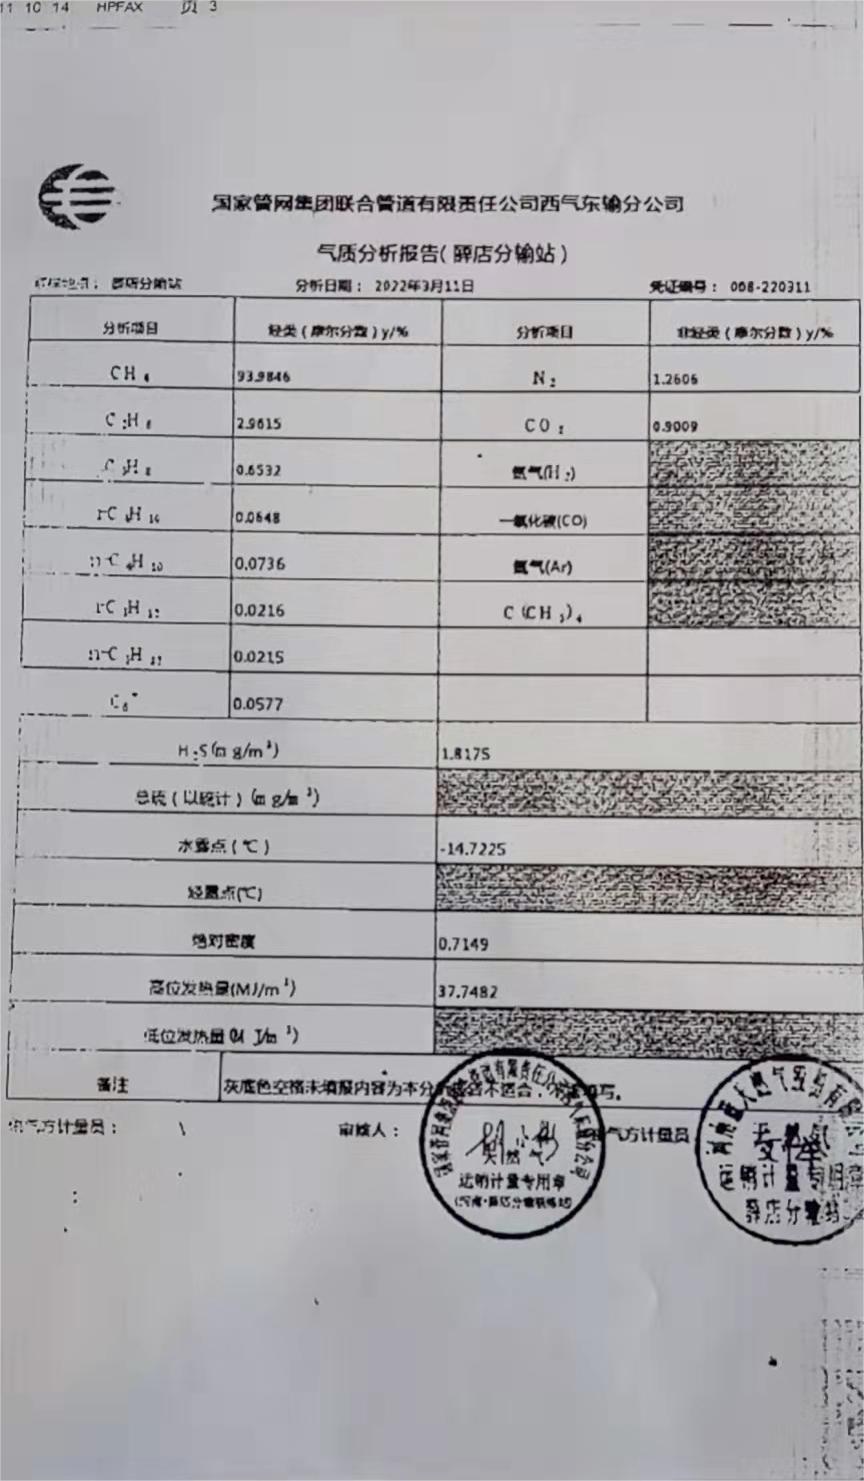 11 10 14 HPFAX 页 3
国家管网集团联合管道有限责任公司西气东输分公司
气质分析报告(驿店分输站)
驿店分输站 分析日期: 2022年3月11日 凭证编号: 008-220311
分析项目 烃类(摩尔分数)y/% 分析项目 非烃类(摩尔分数)y/%
CH4 93.9846 N2 1.2606
C2H6 2.9615 CO2 0.9009
C3H8 0.6532 氢气(H2)
i-C4H10 0.0648 一氧化碳(CO)
n-C4H10 0.0736 氩气(Ar)
i-C5H12 0.0216 C(CH3)4
n-C5H12 0.0215
C6+ 0.0577
H2S(mg/m³) 1.8175
总硫(以硫计)(mg/m³)
水露点(℃) -14.7225
烃露点(℃)
绝对密度 0.7149
高位发热量(MJ/m³) 37.7482
低位发热量(MJ/m³)
备注 灰底色空格未填报内容为本分
气方计量员: 审核人: 气方计量员
运销计量专用章
运销计量专用章
驿店分输站